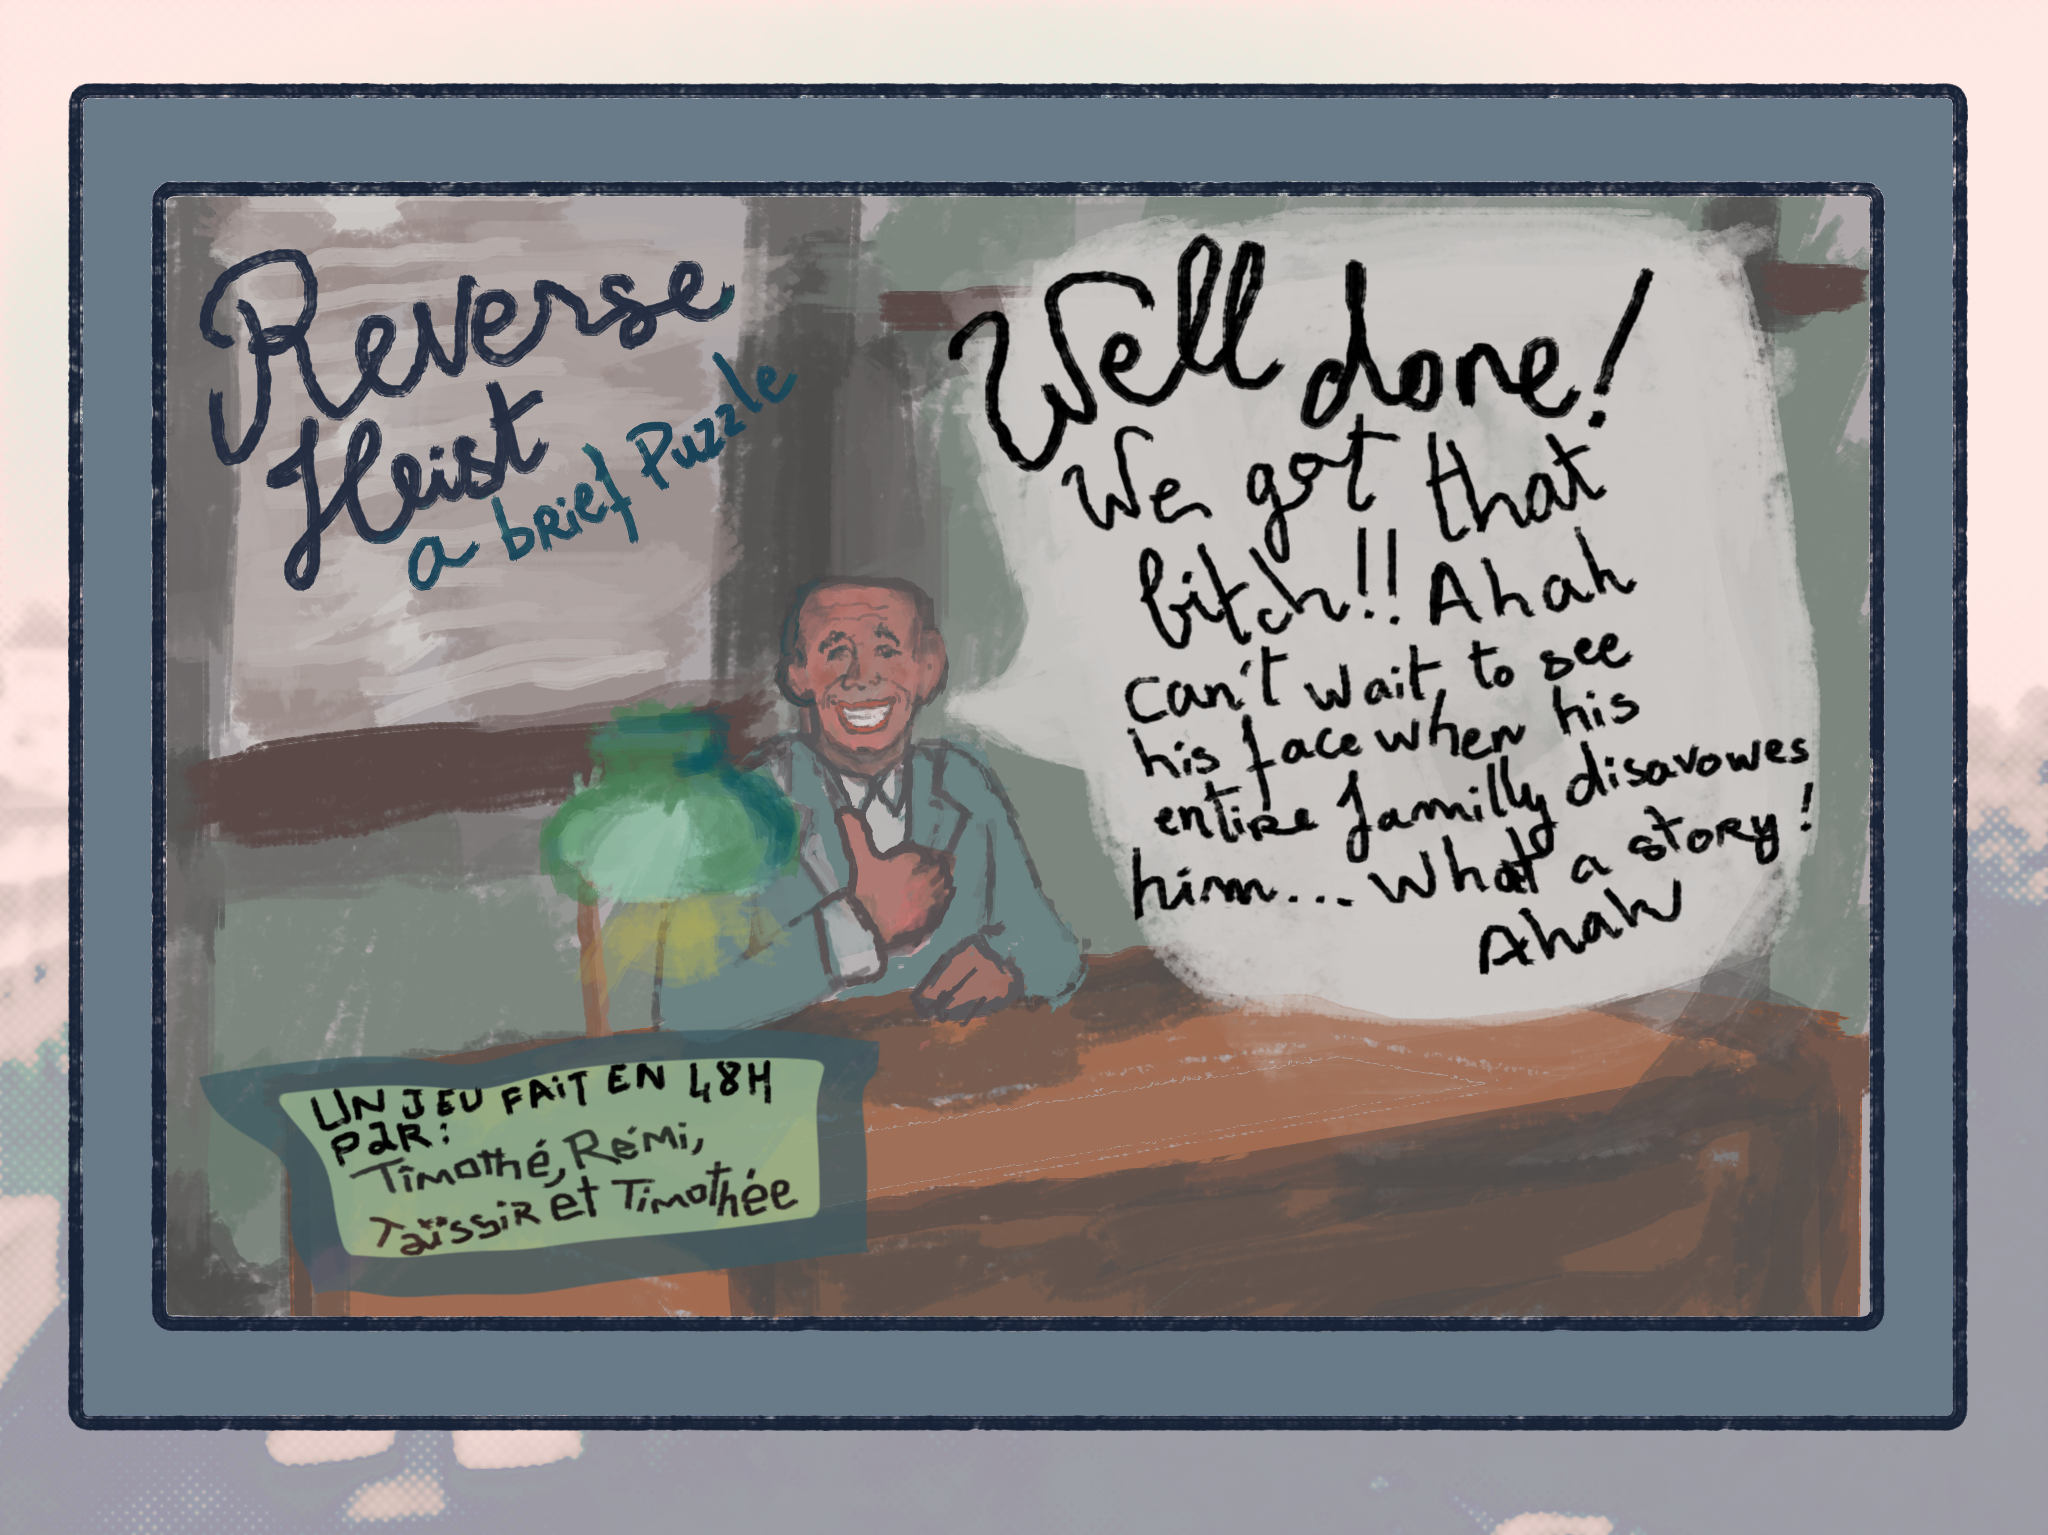 Reverse
Heist
a brief Puzzle
Well done!
We got that
bitch!! Ahah
can't wait to see
his face when his
entire familly disavowes
him... What a story!
Ahah
UN JEU FAIT EN 48H
PAR:
Timothé, Rémi,
Taïssir et Timothée